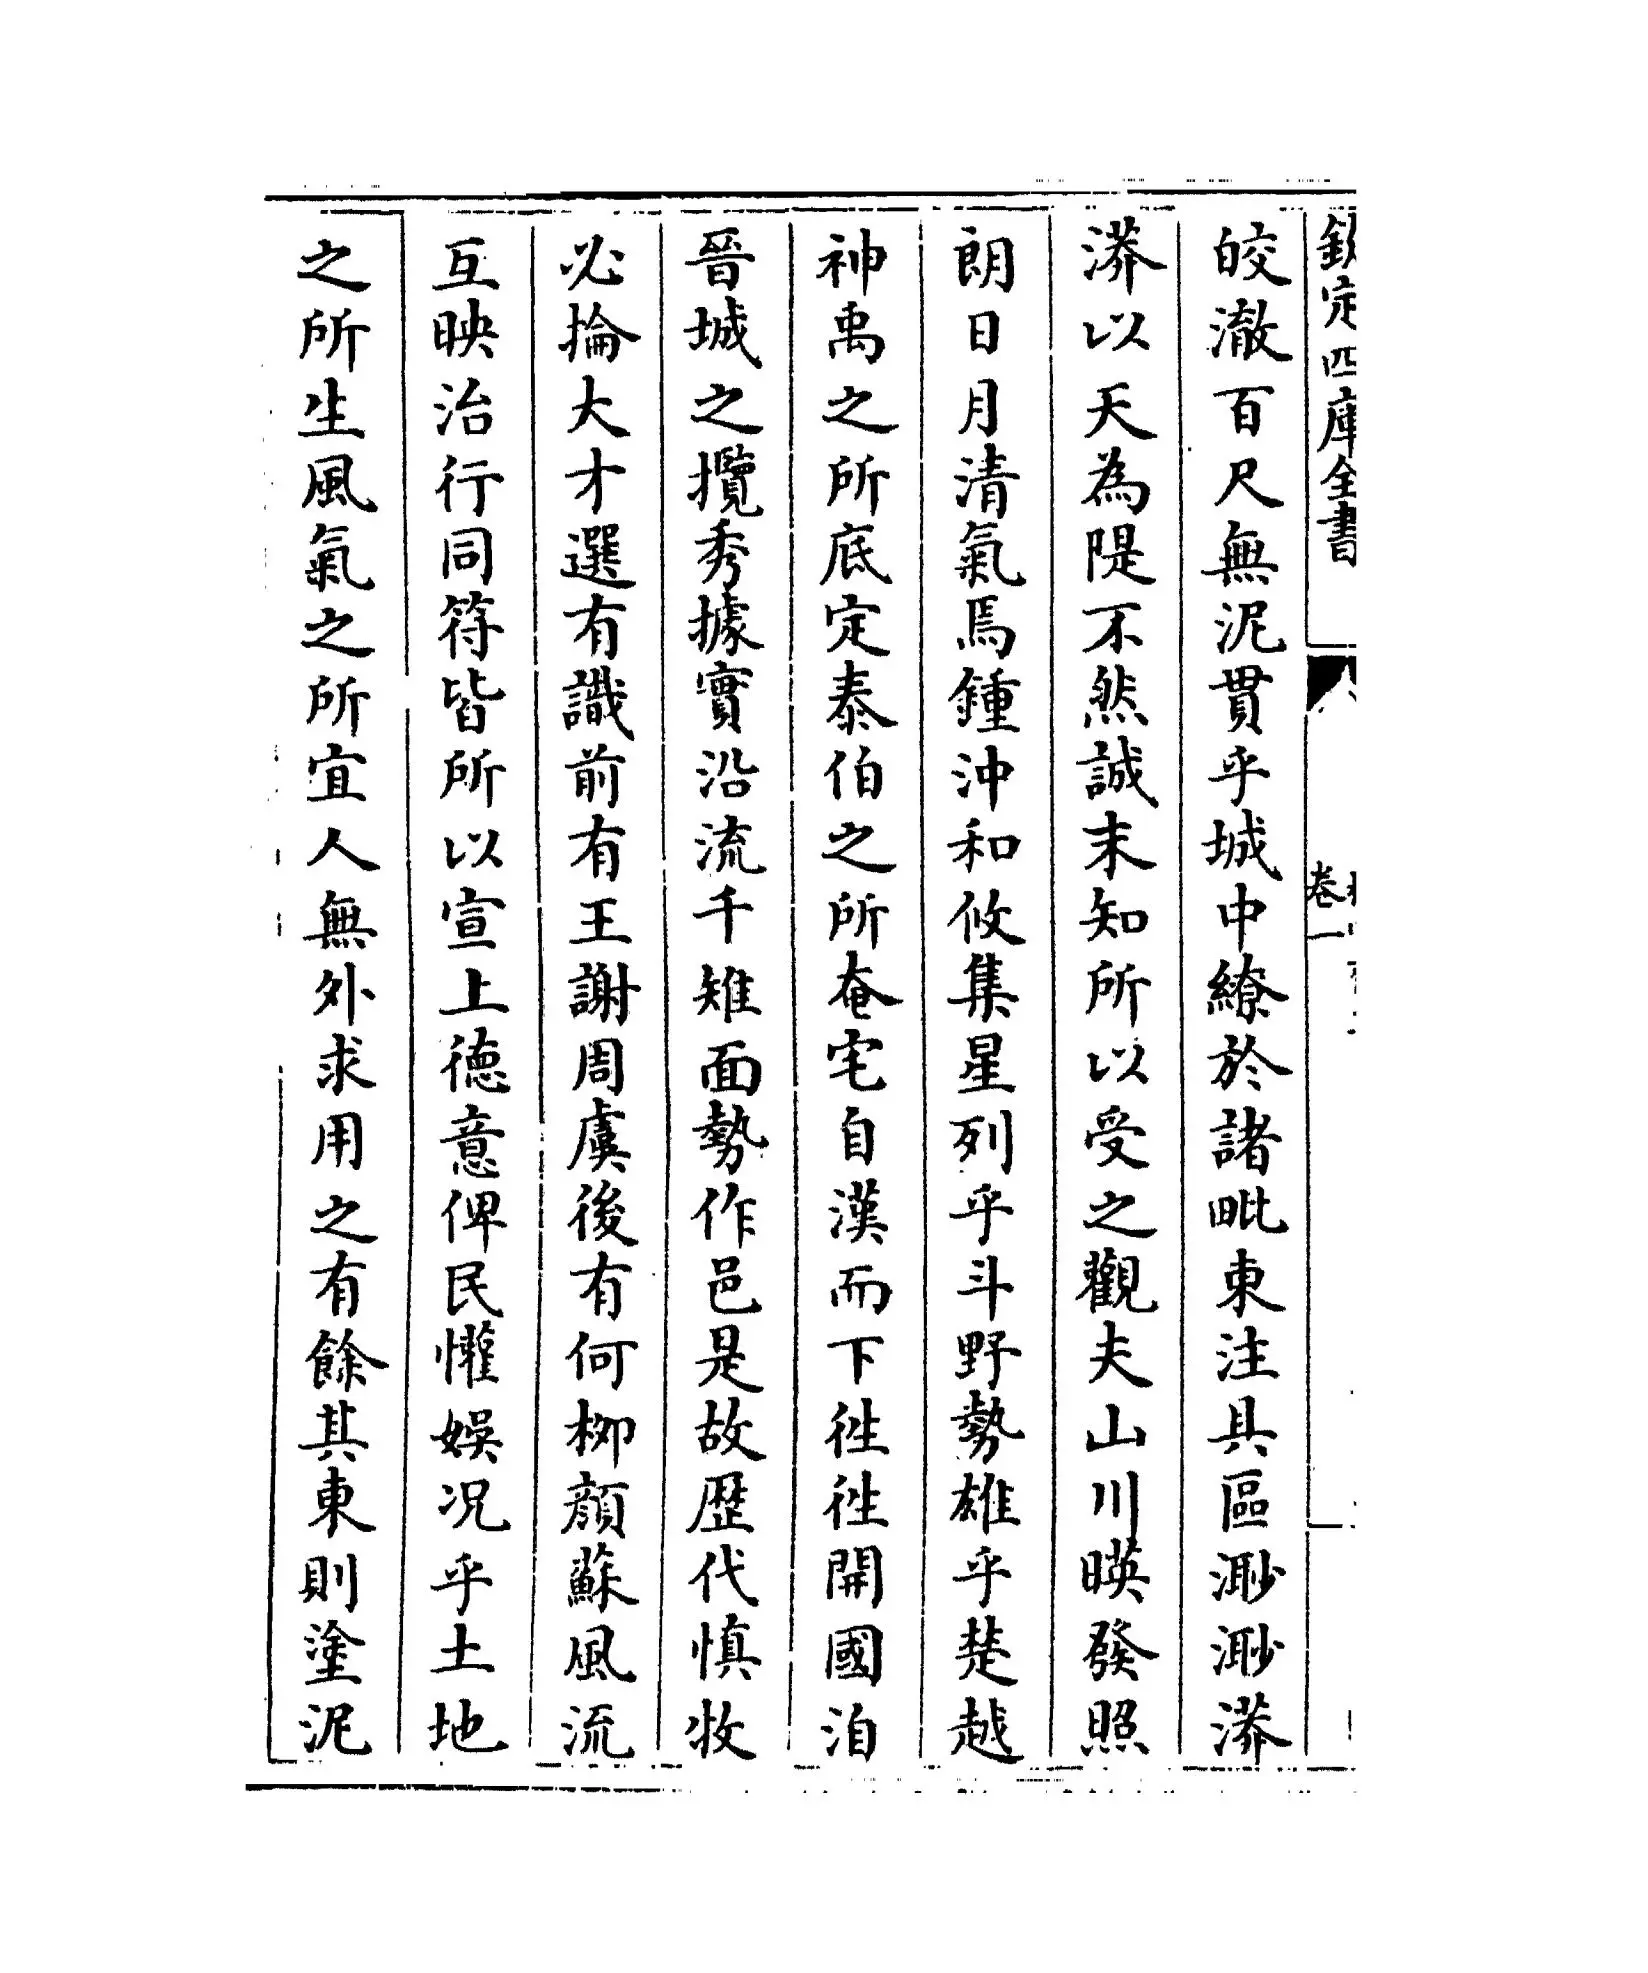 欽定四庫全書
卷一
皎澈百尺無泥貫乎城中繚於諸毗東注具區渺渺漭
漭以天為隄不然誠未知所以受之觀夫山川暎發照
朗日月清氣焉鍾沖和攸集星列乎斗野勢雄乎楚越
神禹之所底定泰伯之所奄宅自漢而下徃徃開國洎
晉城之攬秀據實沿流千雉面勢作邑是故歴代慎牧
必掄大才選有識前有王謝周虞後有何栁顔蘇風流
互映治行同符皆所以宣上德意俾民懽娛況乎土地
之所生風氣之所宜人無外求用之有餘其東則塗泥